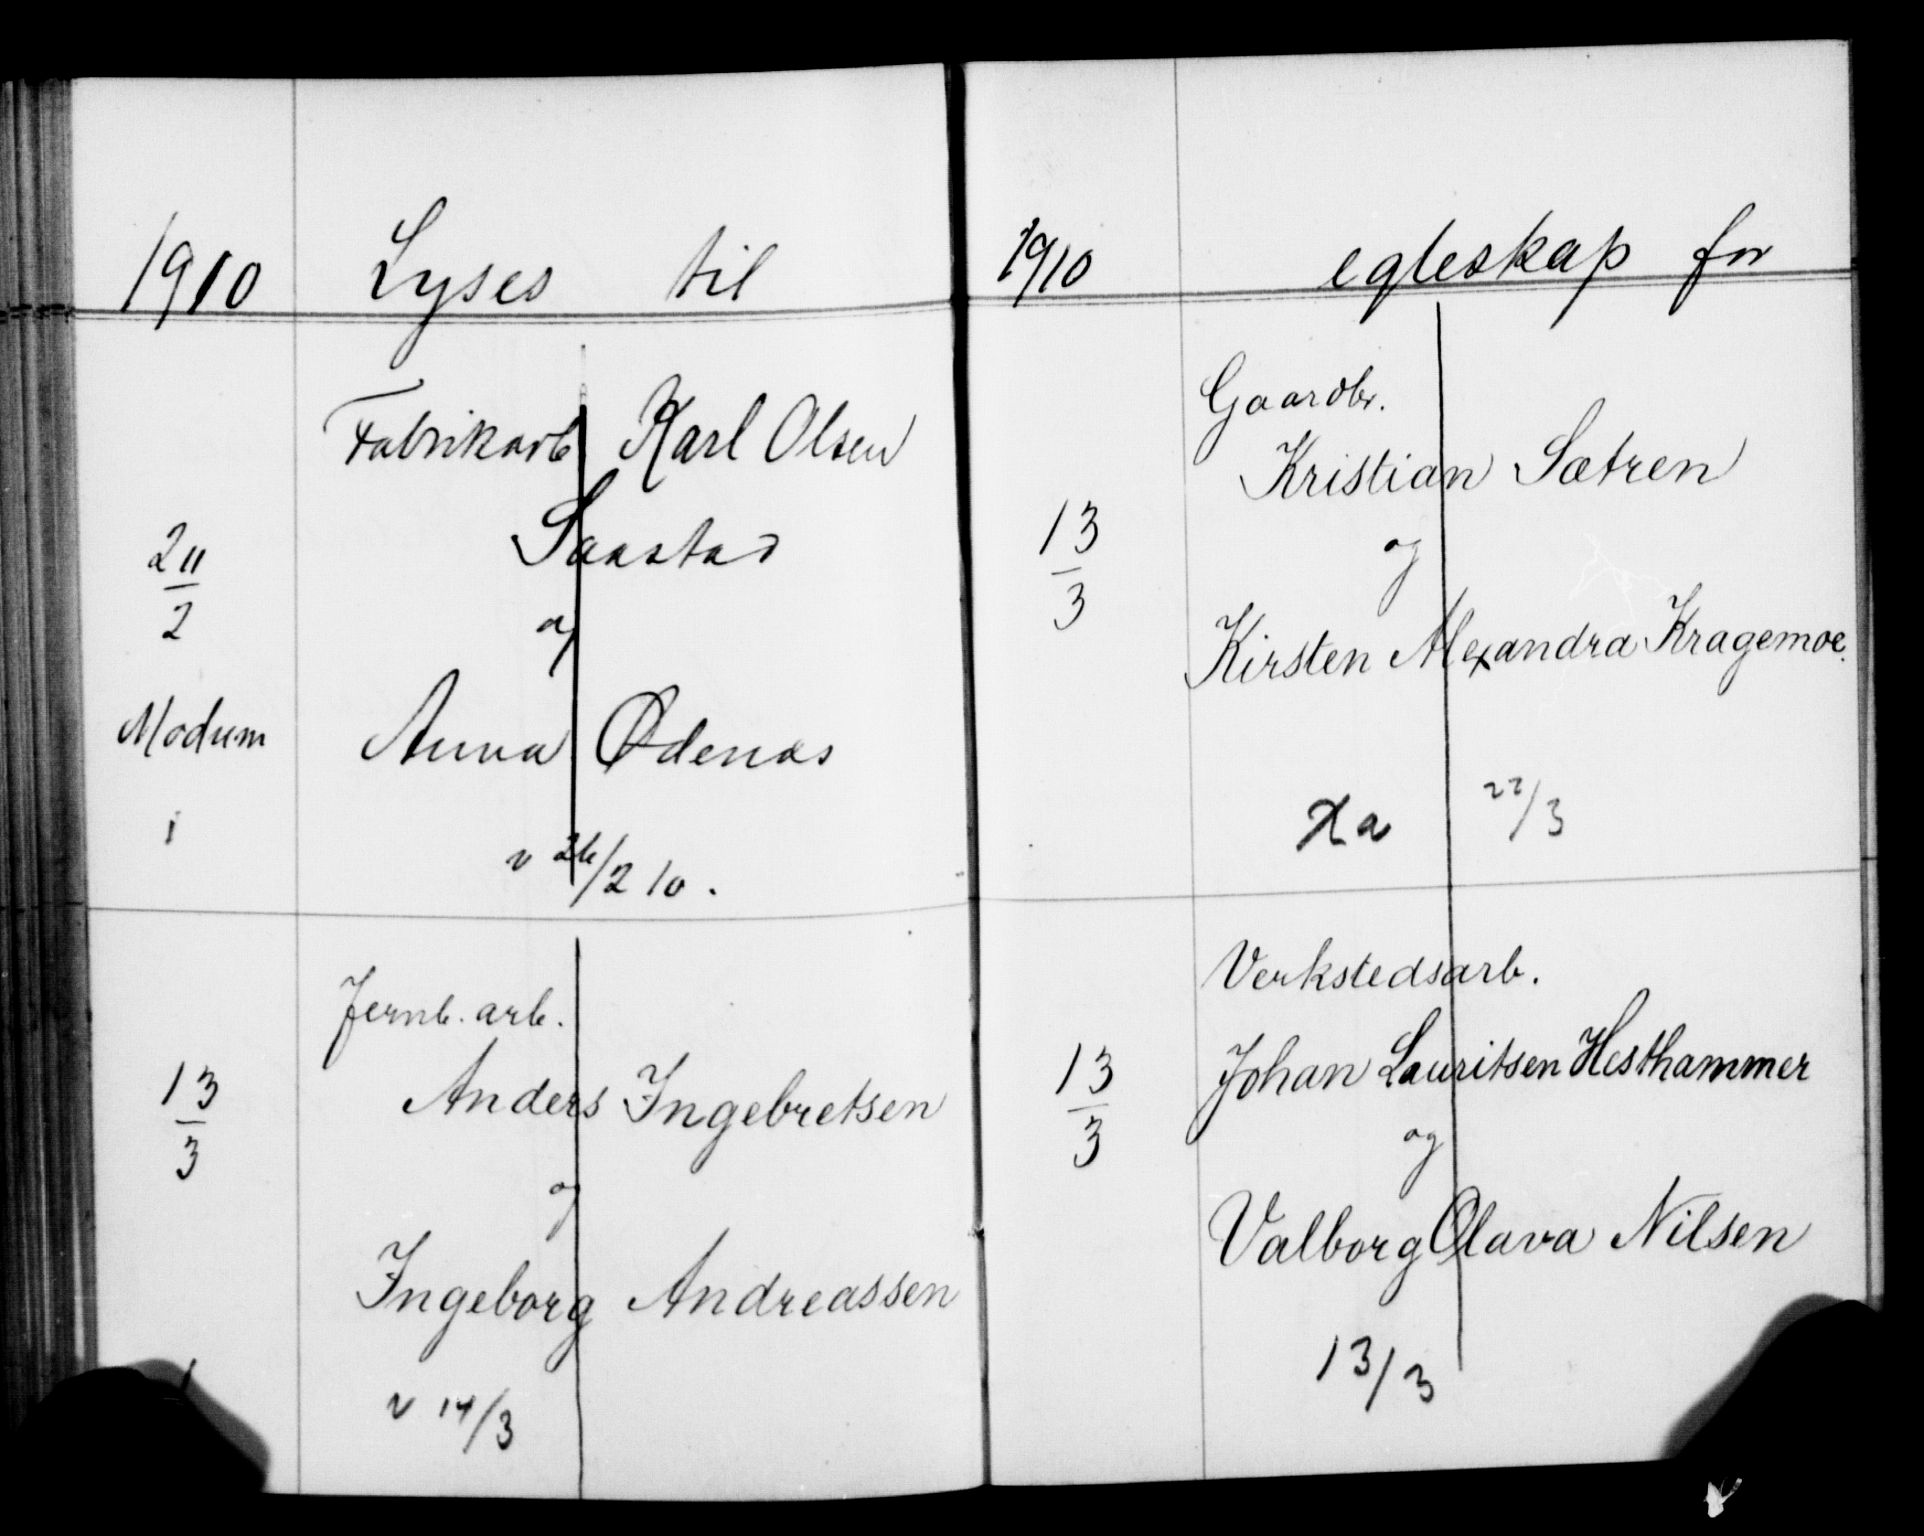 1910 Lyses til
Fabrikarb Karl Olsen
Saastad
20/2
og
Modum
Anna Ødenes
1
v 26/2 10.
Jernb. arb.
Anders Ingebretsen
13/3
og
Ingeborg Andreassen
1
v 14/3
1910 egteskap for
Gaardbr.
Kristian Sætren
13/3
og
Kirsten Alexandra Kragemoe.
22/3
Verkstedsarb.
Johan Lauritsen Hesthammer
13/3
og
Valborg Olava Nilsen
13/3